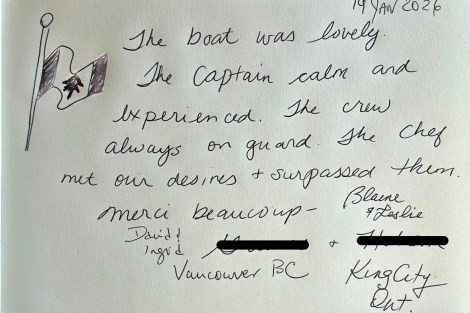 19 JAN 2026
The boat was lovely.
The Captain calm and
experienced. The crew
always on guard. The Chef
met our desires + surpassed them.
Merci beaucoup-
Blaine
+ Leslie
David &
Ingrid
+
Vancouver BC
King City
Ont.